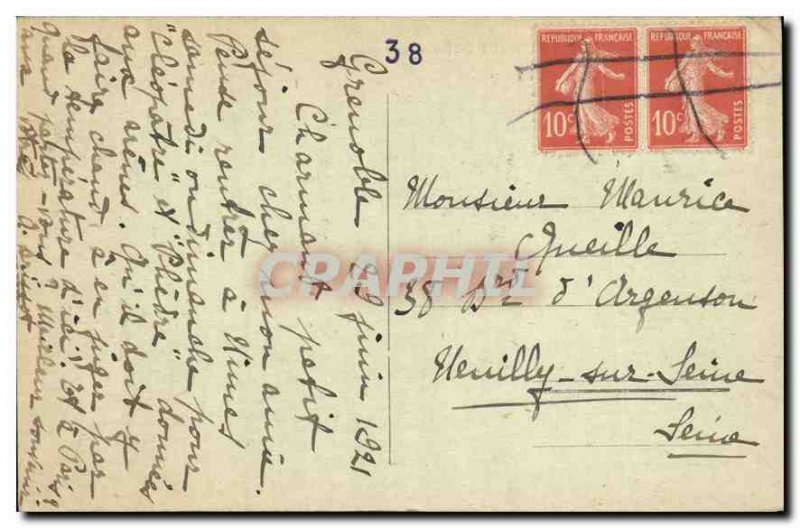 38
RÉPUBLIQUE FRANÇAISE
10c POSTES
RÉPUBLIQUE FRANÇAISE
10c POSTES
Grenoble 29 juin 1921
Charmant petit
séjour cher mon amie.
Pense rentrer à Nîmes
samedi ou dimanche pour
"Cléopâtre" et "Phèdre" données
aux arènes. Qu'il doit y
faire chaud à en juger par
la température d'ici! Et à Paris?
Quand partez-vous? Meilleur souvenir
Monsieur Maurice
Queille
38 Brd d'Argenson
Neuilly-sur-Seine
Seine
CPAPHIL